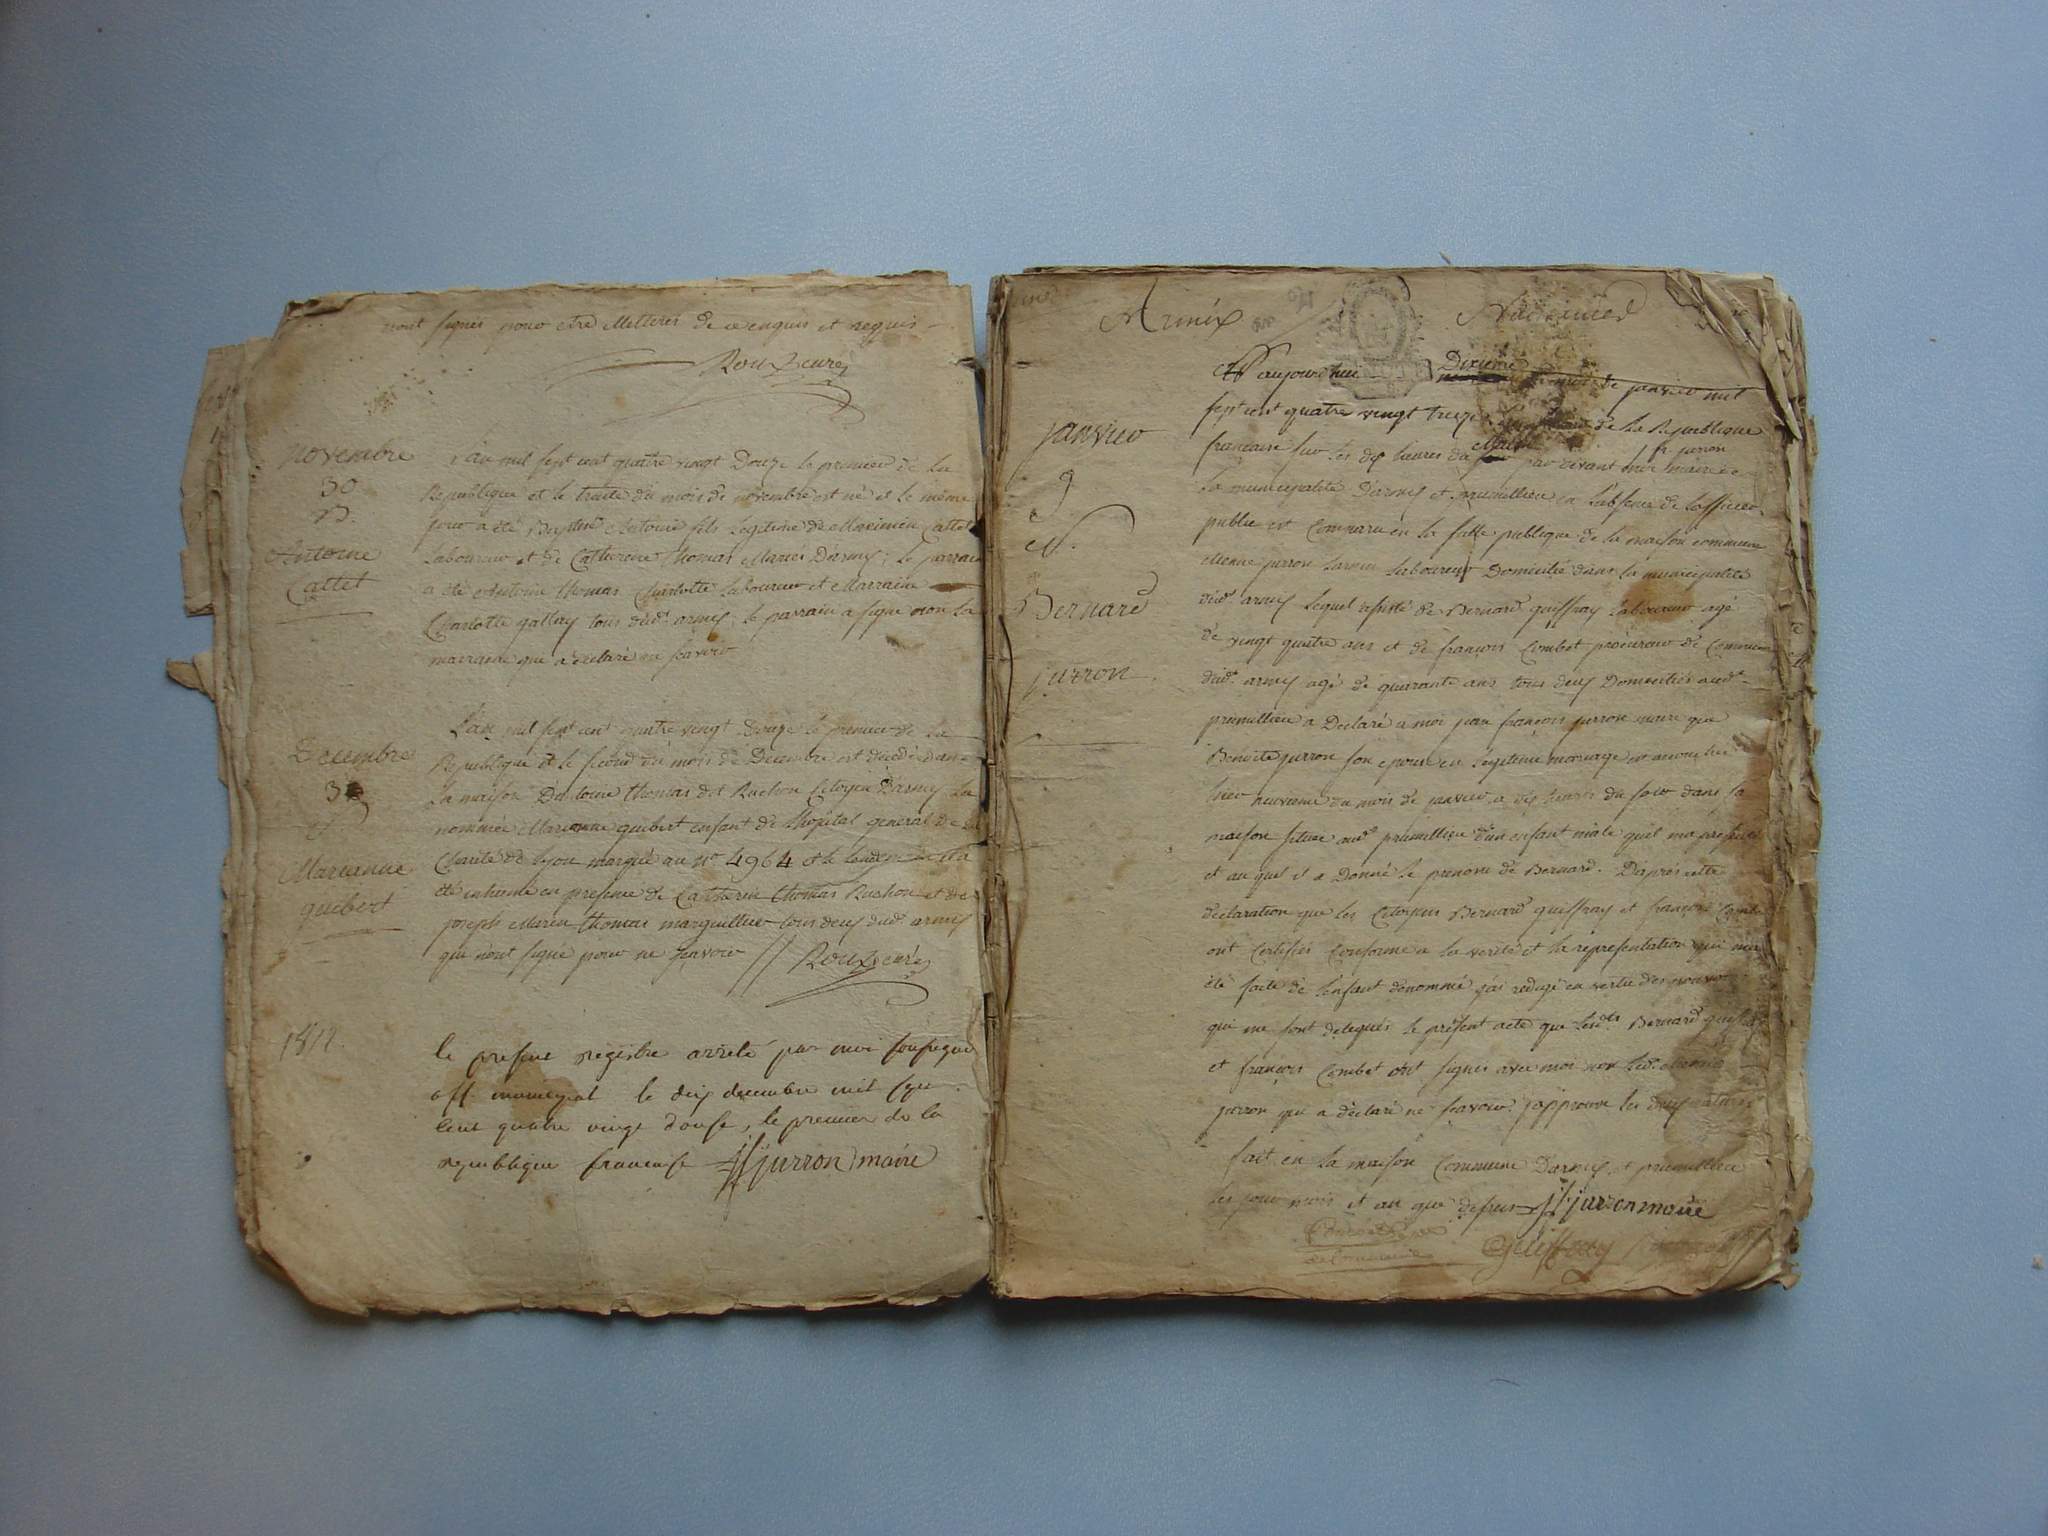 nont signés pour etre illetteres de ce enquis et requis
Roux curé
novembre
30
B.
Antoine
Cattet
L'an mil sept cent quatre vingt Douze le premier de la
Republique et le trente du mois de novembre est né et le même
jour a été Baptisé Antoine fils legitime de Maximien Cattet
Laboureur et de Catherine thomas Mariés D'armix; le parrain
a été Antoine thomas Charlotte Laboureur et Marraine
Charlotte gallay tous dud. armix; le parrain a signé non la
marraine que a declaré ne scavoir
Decembre
3
S
Marianne
guibert
L'an mil sept cent quatre vingt Douze le premier de la
Republique et le second du mois de Decembre est decedée dans
la maison D'Antoine thomas dit Ruchon Citoyen D'armix la
nommée Marianne guibert enfant de l'hopital general de la
Charité de lyon marqué au n° 4964 et le lendemain a
été inhumé en presence de Catherin thomas Ruchon et de
joseph Marin thomas marguillier tous deux dud. armix
qui n'ont signé pour ne scavoir // Roux curé
le present registre arreté par moi soussigné
off. municipal le dix decembre mil sept
cent quatre vingt douse, le premier de la
republique francaise jf jurron maire
Armix
aujourdhui Dixieme du mois de janvier mil
sept cent quatre vingt treize de la Republique
janvier
francaise sur les dix heures du Matin par devant moi jf. jurron maire de
9
la municipalité D'armix et premillieu en l'absence de l'officier
N.
public est Comparu en la salle publique de la maison commune
etienne jurron Laboureur Domicilié dans la municipalité
Bernard
dud. armix lequel assisté de Bernard guiffray Laboureur agé
de vingt quatre ans et de françois Combet procureur de Commune
jurron.
dud. armix agé de quarante ans tous deux Domiciliés aud.
prémillieu a Declaré a moi jean françois jurron maire que
Benoite jurron son epouse en légitime mariage est accouchée
hier neuvieme du mois de janvier a dix heures du soir dans sa
maison située aud. prémillieu d'un enfant mâle qu'il ma presenté
et au quel il a Donné le prenom de Bernard. D'après cette
déclaration que les Citoyens Bernard guiffray et françois Combet
ont certifiés Conforme a la verité et la représentation qui ma
été faite de l'enfant dénommé j'ai redigé en vertu des pouvoirs
qui me sont delegués le présent acte que lesdts Bernard guiffray
et françois Combet ont signés avec moi non led. etienne
jurron qui a déclaré ne scavoir. japprouve les deux ratures
fait en la maison Commune D'armix et prémillieu
les jour mois et an que dessus jf jurron maire
guiffray